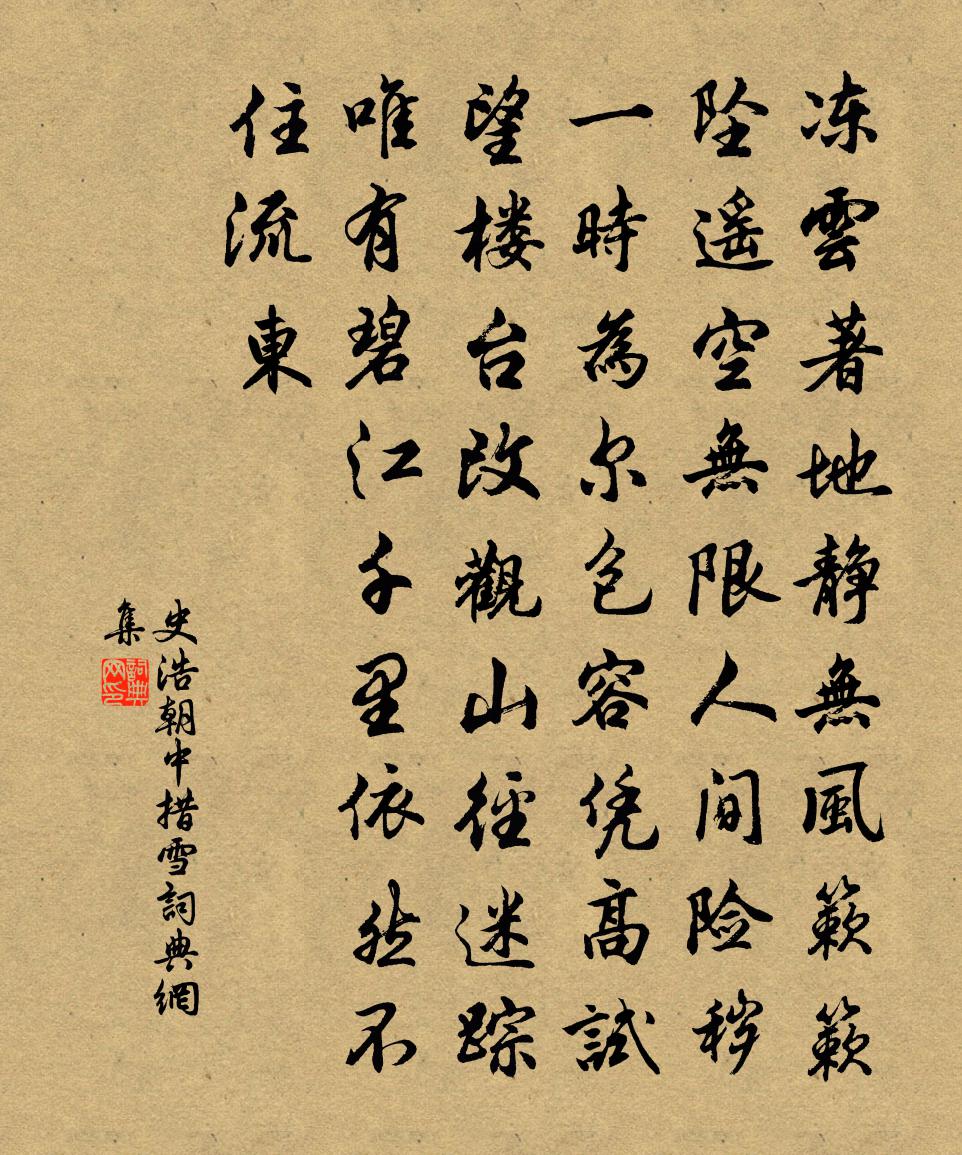 冻雲著地静無風簌簌
坠遥空無限人间险秽
一時為尔包容凭高試
望楼台改觀山徑迷踪
唯有碧江千里依然不
住流東
史浩朝中措雪詞典網
集
詞典
网印